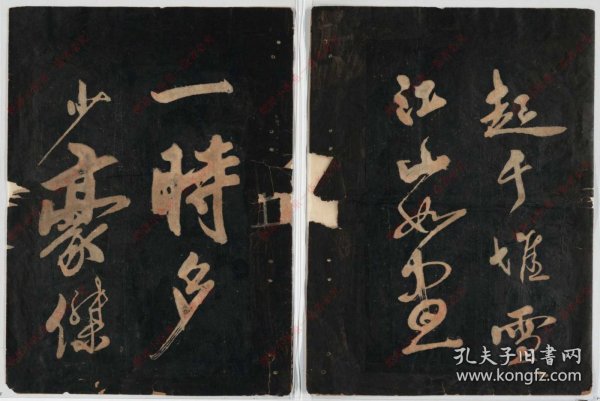 起千堆雪
江山如画
一時多
少豪傑
孔夫子旧书网
www.kongfz.com